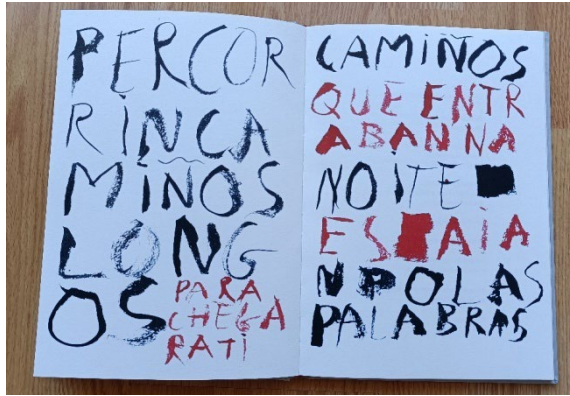 PERCOR
RINCA
MIÑOS
LONG
OS
PARA
CHEGA
RATI
CAMIÑOS
QUE ENTR
ABAN NA
NOITE
ES AÍA
N POLAS
PALABRAS